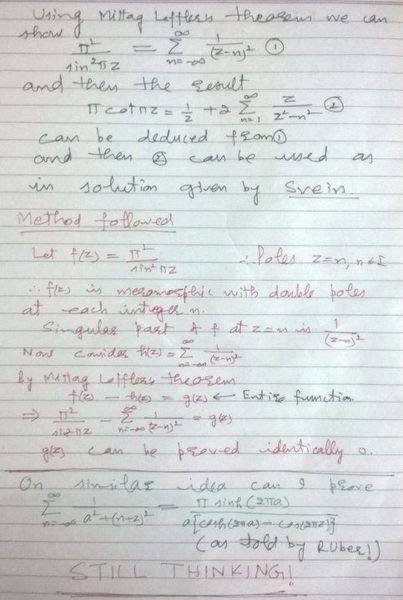 Using Mittag Leffler's theorem we can
show π²/sin²πz = ∑_{n=-∞}^{∞} 1/(z-n)² ①
and then the result
π cot πz = 1/z + 2 ∑_{n=1}^{∞} z/(z²-n²) ②
can be deduced from ①
and then ② can be used as
in solution given by Svein.
Method followed
Let f(z) = π²/sin²πz ∴ Poles z=n, n∈I
∴ f(z) is meromorphic with double poles
at each integer n.
Singular part of f at z=n is 1/(z-n)²
Now consider h(z) = ∑_{n=-∞}^{∞} 1/(z-n)²
By Mittag Lefflers theorem
f(z) - h(z) = g(z) ← Entire function
⇒ π²/sin²πz - ∑_{n=-∞}^{∞} 1/(z-n)² = g(z)
g(z) can be proved identically 0.
On similar idea can I prove
∑_{n=-∞}^{∞} 1/(a²+(n+z)²) = π sinh(2πa)/a[cosh(2πa) - cos(2πz)]
(as told by RUber!)
STILL THINKING!